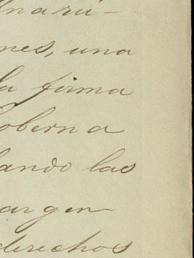 linari-
nes, una
la firma
oberna
ando las
argen
derechos